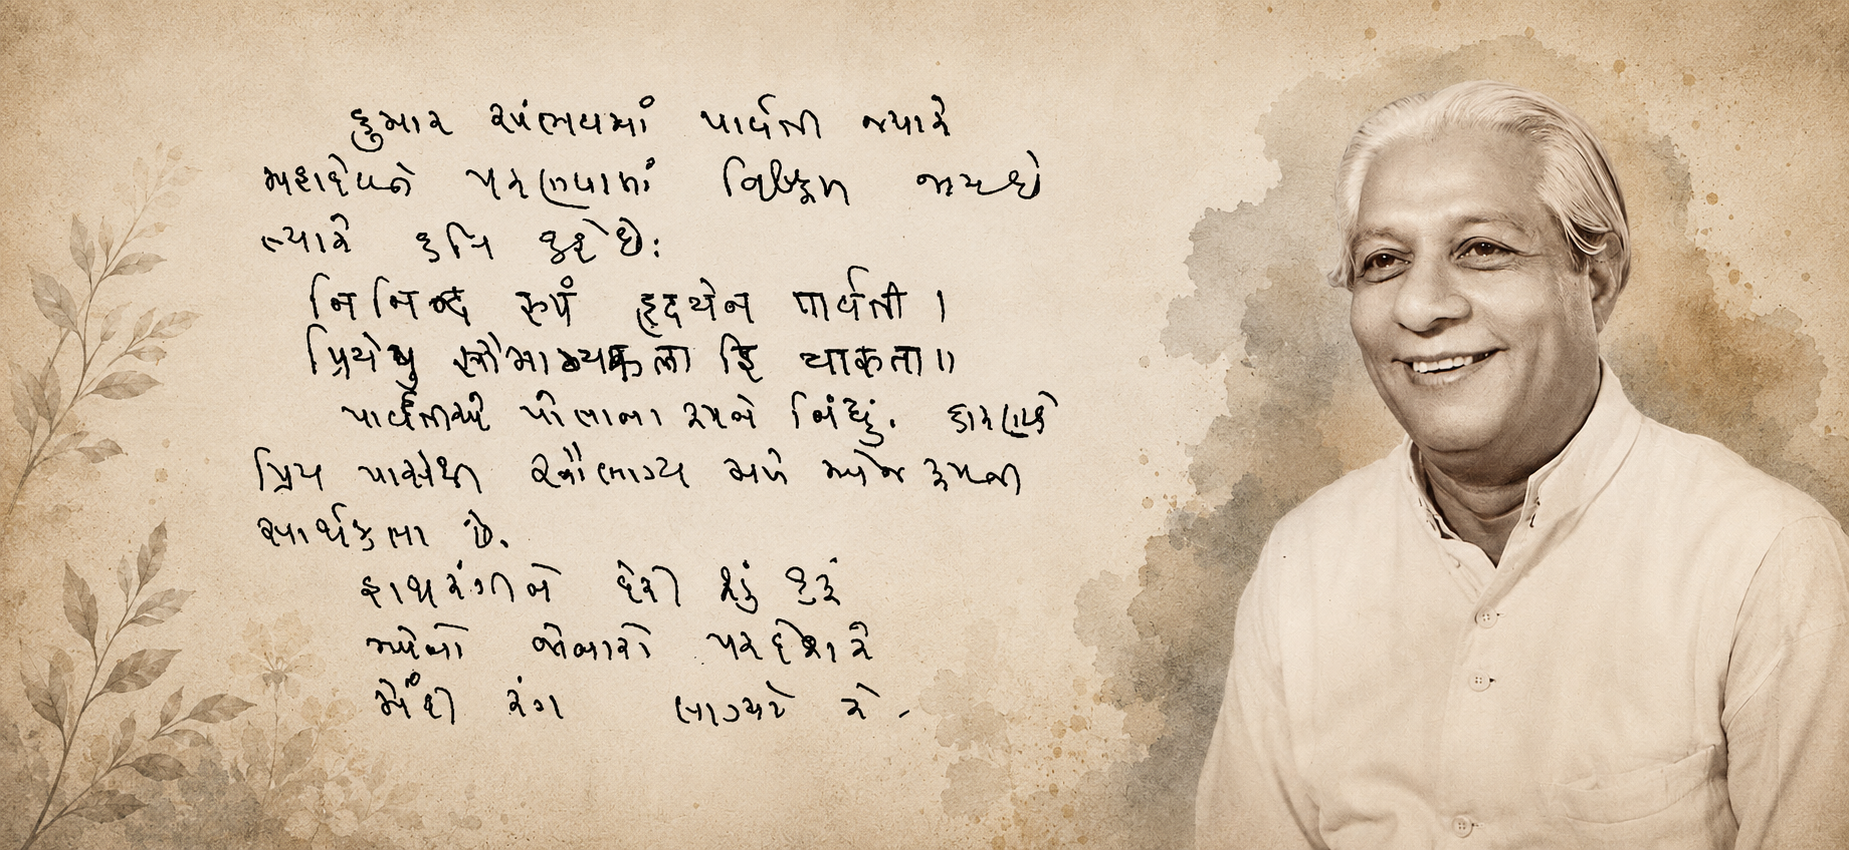 કુમાર સંભવમાં પાર્વતી જ્યારે
મહાદેવને પરણવામાં નિષ્ફળ જાય છે
ત્યારે કવિ કહે છે:
निनिन्द रूपं हृदयेन पार्वती ।
प्रियेषु सौभाग्यफला हि चारुता ॥
પાર્વતીએ પોતાના રૂપને નિંદ્યું. કારણકે
પ્રિય પાસેથી સૌભાગ્ય મળે એજ રૂપની
સાર્થકતા છે.
હાથ રંગીને દેરી શું કરું
એનો જોનારો પરદેશ રે
મેંદી રંગ લાગ્યો રે -